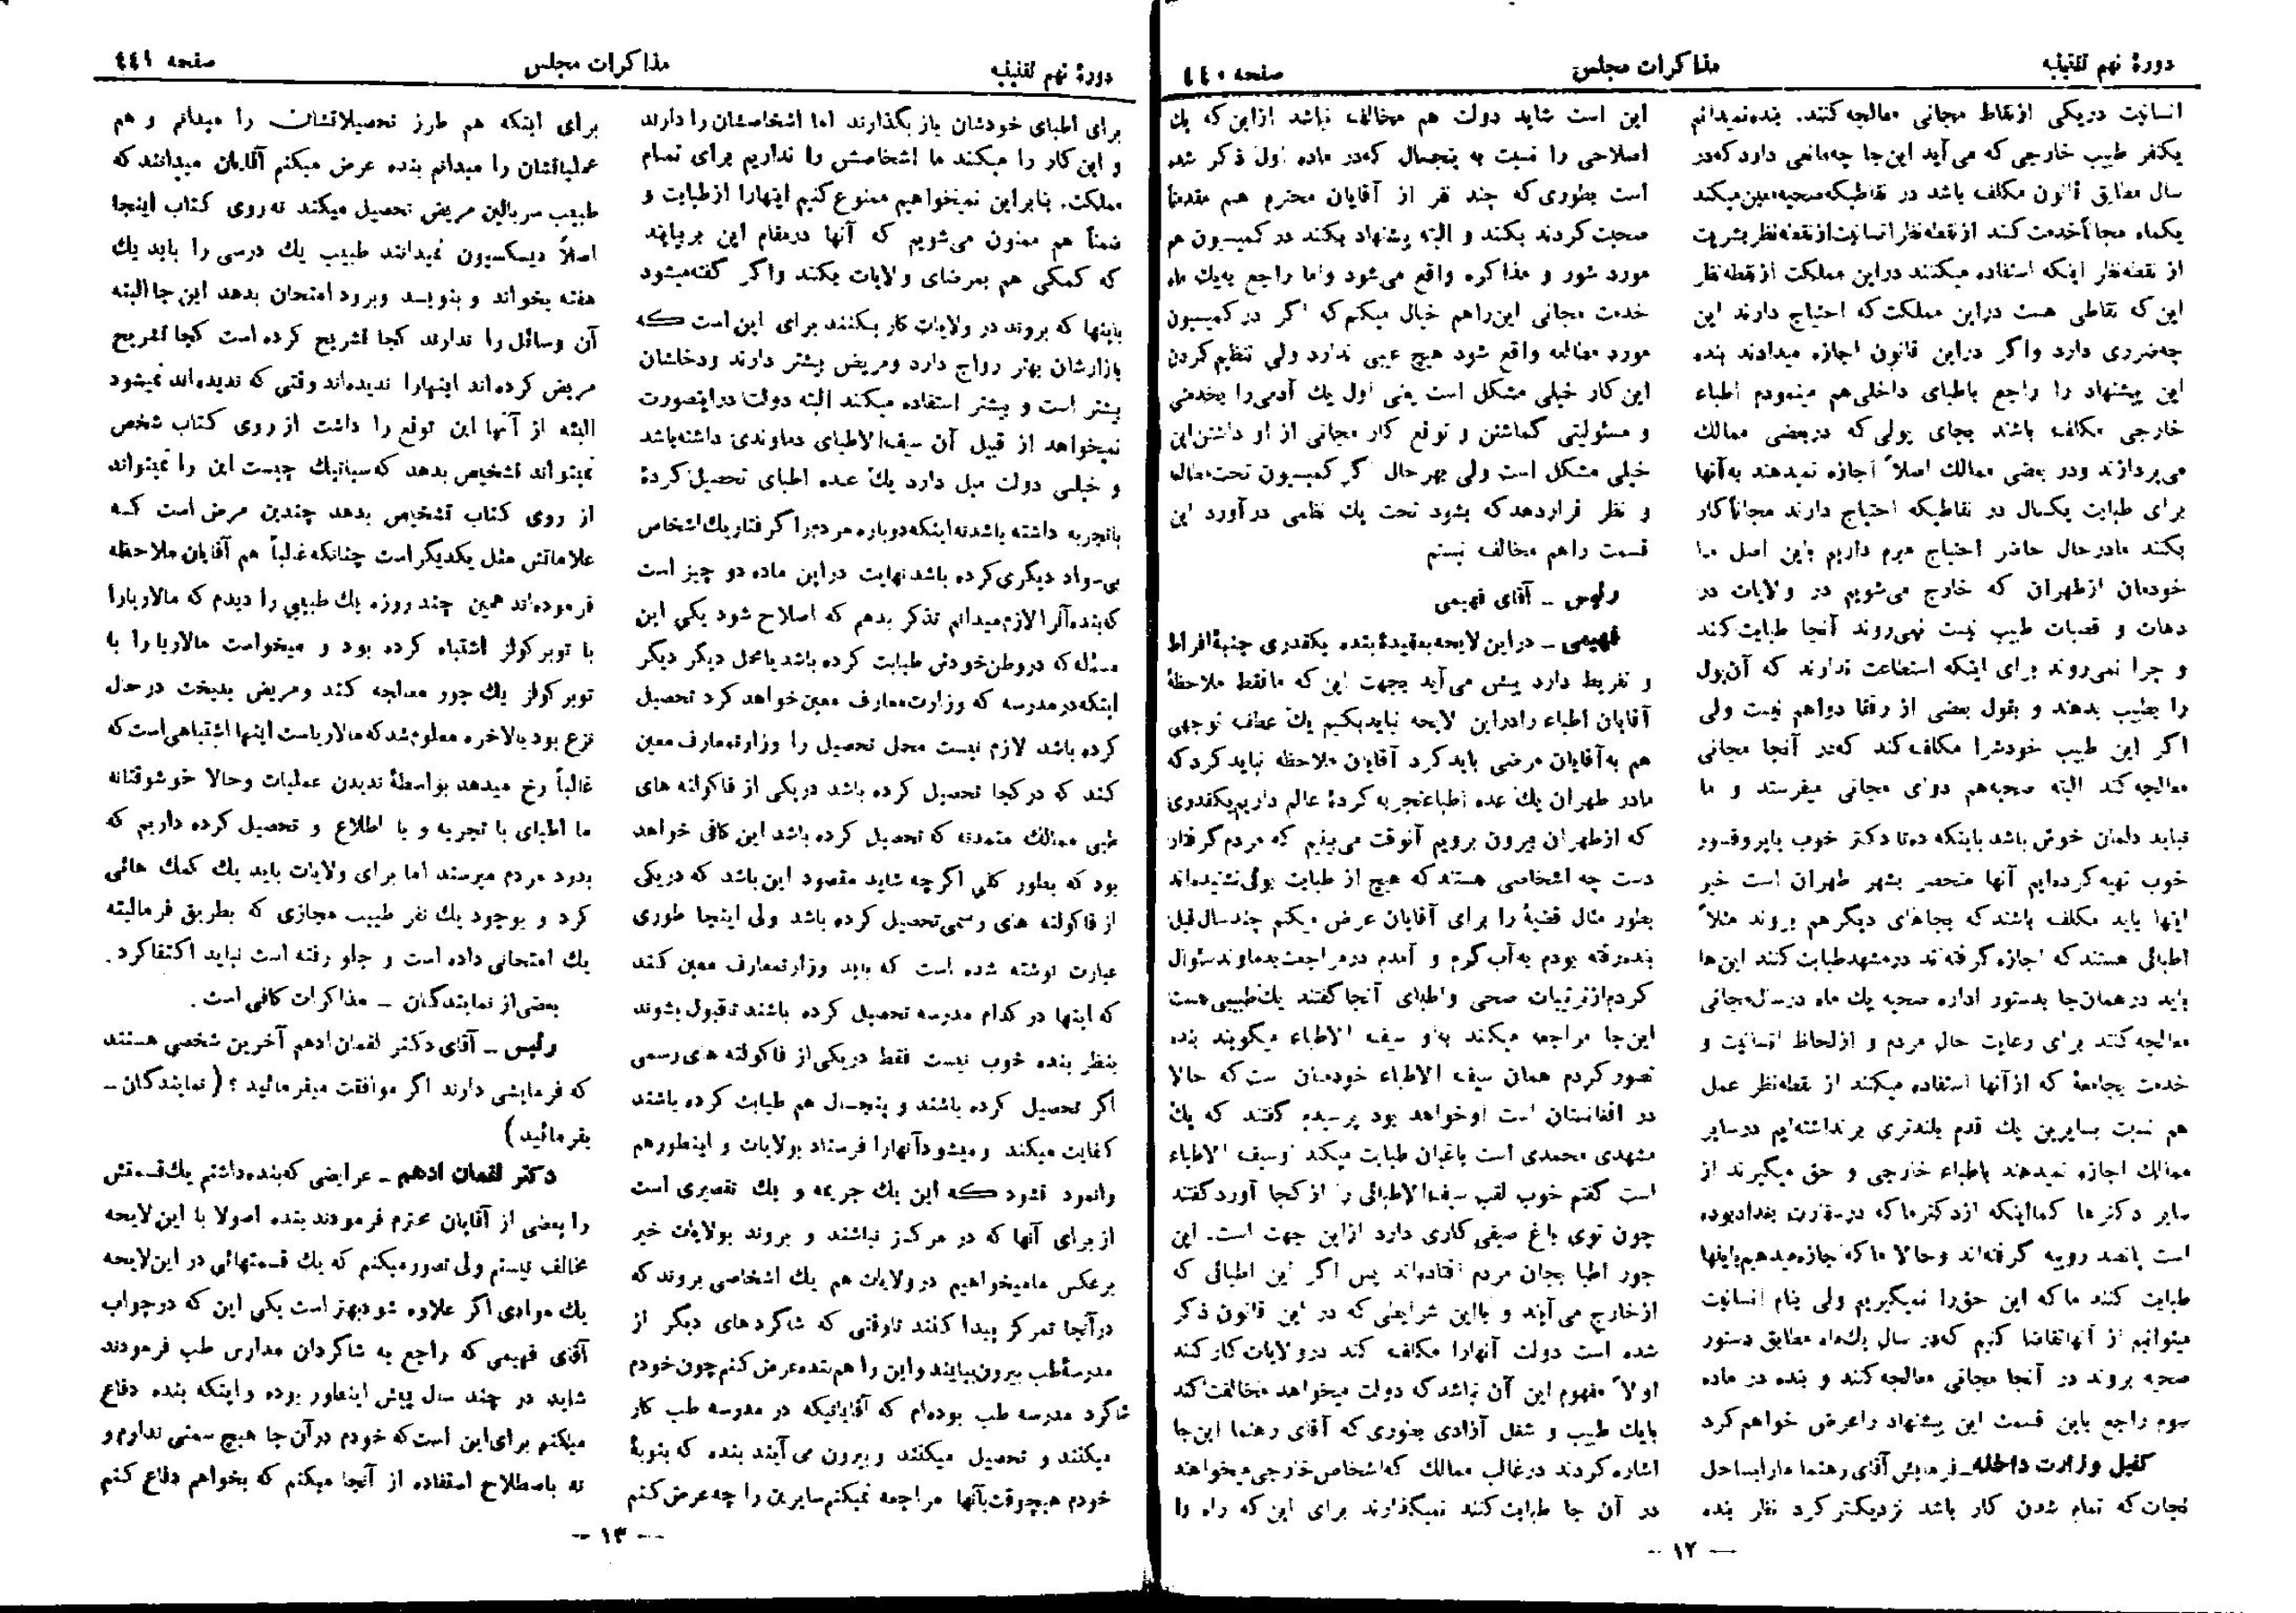 دورهٔ نهم تقنینیه
مذاکرات مجلس
صفحه ٤٤٠
انسانیت دریکی ازنقاط مجانی معالجه‌کنند. بنده‌نمیدانم
یکنفر طبیب خارجی که می‌آید این‌جا چه‌مانعی دارد که‌در
سال مطابق قانون مکلف باشد در نقاطیکه صحیه معین میکند
یکماه مجاناً خدمت کنند از نقطه‌نظر انسانیت از نقطه‌نظر بشریت
از نقطه‌نظر اینکه استفاده میکنند دراین مملکت از نقطه‌نظر
این که نقاطی هست دراین مملکت که احتیاج دارند این
چه‌ضرری دارد واگر دراین قانون اجازه میدادند بنده
این پیشنهاد را راجع باطبای داخلی‌هم مینمودم اطباء
خارجی مکلف باشند بجای پولی که دربعضی ممالک
می‌پردازند ودر بعضی ممالک اصلاً اجازه نمیدهند به‌آنها
برای طبابت یکسال در نقاطیکه احتیاج دارند مجاناً کار
بکنند مادرحال حاضر احتیاج مبرم داریم باین اصل ما
خودمان ازطهران که خارج می‌شویم در ولایات در
دهات و قصبات طبیب نیست نمی‌روند آنجا طبابت کند
و چرا نمی‌روند برای اینکه استطاعت ندارند که آن‌پول
را بطبیب بدهند و بقول بعضی از رفقا دواهم نیست ولی
اگر این طبیب خودشرا مکلف کند که‌در آنجا مجانی
معالجه کند البته صحیه‌هم دوای مجانی میفرستد و ما
نباید دلمان خوش باشد باینکه ده‌تا دکتر خوب یاپروفسور
خوب تهیه کرده‌ایم آنها منحصر بشهر طهران است خیر
اینها باید مکلف باشند که بجاهای دیگر هم بروند مثلاً
اطبائی هستند که اجازه گرفته‌اند درمشهد طبابت کنند این‌ها
باید در همان‌جا بدستور اداره صحیه یك ماه درسال مجانی
معالجه کنند برای رعایت حال مردم و ازلحاظ انسانیت و
خدمت بجامعهٔ که ازآنها استفاده میکنند از نقطه‌نظر عمل
هم نسبت بسایرین یك قدم بلندتری برنداشته‌ایم درسایر
ممالك اجازه نمیدهند باطباء خارجی و حق میگیرند از
سایر دکترها کمااینکه ازدکترماکه درسفارت بغدادبوده
است پانصد روپیه گرفته‌اند وحالا ماکه اجازه‌میدهیم باینها
طبابت کنند ماکه این حق‌را نمیگیریم ولی بنام انسانیت
میتوانیم از آنهاتقاضا کنیم که‌در سال یك‌ماه مطابق دستور
صحیه بروند در آنجا مجانی معالجه کنند و بنده در ماده
سوم راجع باین قسمت این پیشنهاد راعرض خواهم کرد
کفیل وزارت داخله ـ فرمایش آقای رهنما مارابساحل
نجات که تمام شدن کار باشد نزدیکتر کرد نظر بنده
این است شاید دولت هم مخالف نباشد ازاین که یك
اصلاحی را نسبت به پنجسال که‌در ماده اول ذکر شده
است بطوری که چند نفر از آقایان محترم هم مقدمتاً
صحبت کردند بکنند و البته پیشنهاد بکنند در کمیسیون هم
مورد شور و مذاکره واقع می‌شود واما راجع به‌یك ماه
خدمت مجانی این‌راهم خیال میکنم که اگر در کمیسیون
مورد مطالعه واقع شود هیچ عیبی ندارد ولی تنظیم کردن
این کار خیلی مشکل است یعنی اول یك آدمی را بخدمتی
و مسئولیتی گماشتن و توقع کار مجانی از او داشتن این
خیلی مشکل است ولی بهرحال اگر کمیسیون تحت مطالعه
و نظر قراردهد که بشود تحت یك نظمی درآورد این
قسمت راهم مخالف نیستم
رئیس ـ آقای فهیمی
فهیمی ـ دراین لایحه بعقیدهٔ بنده یکقدری جنبهٔ افراط
و تفریط دارد پیش می‌آید بجهت این که مافقط ملاحظهٔ
آقایان اطباء رادراین لایحه نباید بکنیم یك عطف توجهی
هم به‌آقایان مرضی باید کرد آقایان ملاحظه نباید کرد که
مادر طهران یك عده اطباء تجربه کردهٔ عالم داریم یکقدری
که ازطهران بیرون برویم آنوقت می‌بینیم که مردم گرفتار
دست چه اشخاصی هستند که هیچ از طبابت بوئی نشنیده‌اند
بطور مثال قضیهٔ را برای آقایان عرض میکنم چندسال قبل
بنده‌رفته بودم به‌آب گرم و آمدم درمراجعت بدماوند سئوال
کردم ازترتیبات صحی و اطبای آنجا گفتند یك طبیبی هست
این‌جا مراجعه میکنند به‌او سیف الاطباء میگویند بنده
تصور کردم همان سیف الاطباء خودمان ست که حالا
در افغانستان است اوخواهد بود پرسیدم گفتند که یك
مشهدی محمدی است باغبان طبابت میکند اوسیف الاطباء
است گفتم خوب لقب سیف‌الاطبائی را از کجا آورد گفتند
چون توی باغ صیفی کاری دارد ازاین جهت است. این
جور اطبا بجان مردم افتاده‌اند پس اگر این اطبائی که
ازخارج می‌آیند و بااین شرایطی که در این قانون ذکر
شده است دولت آنهارا مکلف کند درولایات کار کنند
اولاً مفهوم این آن نباشد که دولت میخواهد مخالفت کند
بایك طبیب و شغل آزادی بطوری که آقای رهنما این‌جا
اشاره کردند درغالب ممالك که اشخاص خارجی میخواهند
در آن جا طبابت کنند نمیگذارند برای این که راه را
— ١٢ —
دورهٔ نهم تقنینیه
مذاکرات مجلس
صفحه ٤٤١
برای اطبای خودشان باز بگذارند اما اشخاصشان را دارند
و این کار را میکنند ما اشخاصش را نداریم برای تمام
مملکت. بنابراین نمیخواهیم ممنوع کنیم اینهارا ازطبابت و
ضمناً هم ممنون می‌شویم که آنها درمقام این بر بیایند
که کمکی هم بمرضای ولایات بکنند واگر گفته‌میشود
باینها که بروند در ولایات کار بکنند برای این است که
بازارشان بهتر رواج دارد ومریض بیشتر دارند ودخلشان
بیشتر است و بیشتر استفاده میکنند البته دولت دراینصورت
نمیخواهد از قبیل آن سیف‌الاطبای دماوندی داشته‌باشد
و خیلی دولت میل دارد یك عده اطبای تحصیل کردهٔ
باتجربه داشته باشد نه اینکه دوباره مردم را گرفتار یك اشخاص
بی‌سواد دیگری کرده باشد نهایت دراین ماده دو چیز است
که‌بنده آنرا لازم میدانم تذکر بدهم که اصلاح شود یکی این
مسئله که دروطن خودش طبابت کرده باشد یامحل دیگر دیگر
اینکه درمدرسه که وزارت معارف معین خواهد کرد تحصیل
کرده باشد لازم نیست محل تحصیل را وزارتمعارف معین
کند که در کجا تحصیل کرده باشد دریکی از فاکولته های
طبی ممالك متمدنه که تحصیل کرده باشد این کافی خواهد
بود که بطور کلی اگرچه شاید مقصود این باشد که دریکی
از فاکولته های رسمی تحصیل کرده باشد ولی اینجا طوری
عبارت نوشته شده است که باید وزارتمعارف معین کند
که اینها در کدام مدرسه تحصیل کرده باشند تاقبول بشوند
بنظر بنده خوب نیست فقط دریکی از فاکولته های رسمی
اگر تحصیل کرده باشند و پنجسال هم طبابت کرده باشند
کفایت میکند ومیشود آنهارا فرستاد بولایات و اینطورهم
وانمود نشود که این یك جریمه و یك تقصیری است
از برای آنها که در مرکز نباشند و بروند بولایات خیر
برعکس مامیخواهیم درولایات هم یك اشخاصی بروند که
درآنجا تمرکز پیدا کنند تاوقتی که شاگردهای دیگر از
مدرسهٔ طب بیرون بیایند و این را هم بنده عرض کنم چون خودم
شاگرد مدرسه طب بوده‌ام که آقایانیکه در مدرسه طب کار
میکنند و تحصیل میکنند و بیرون می آیند بنده که بنوبهٔ
خودم هیچوقت بآنها مراجعه نمیکنم سایرین را چه عرض کنم
برای اینکه هم طرز تحصیلاتشان را میدانم و هم
عملیاتشان را میدانم بنده عرض میکنم آقایان میدانند که
طبیب سربالین مریض تحصیل میکند نه‌روی کتاب اینجا
اصلاً دیسکسیون نمیدانند طبیب یك درسی را باید یك
هفته بخواند و بنویسد وبرود امتحان بدهد این جا البته
آن وسائل را ندارند کجا تشریح کرده است کجا تشریح
مریض کرده‌اند اینهارا ندیده‌اند وقتی که ندیده‌اند نمیشود
البته از آنها این توقع را داشت از روی کتاب شخص
نمیتواند تشخیص بدهد که سیاتیك چیست این را نمیتواند
از روی کتاب تشخیص بدهد چندین مرض است که
علاماتش مثل یکدیگر است چنانکه غالباً هم آقایان ملاحظه
فرموده‌اند همین چند روزه یك طبیبی را دیدم که مالاریارا
با توبرکولز اشتباه کرده بود و میخواست مالاریا را با
توبرکولز یك جور معالجه کند ومریض بدبخت درحال
نزع بود بالاخره معلوم شد که مالاریاست اینها اشتباهی است که
غالباً رخ میدهد بواسطهٔ ندیدن عملیات وحالا خوشوقتانه
ما اطبای با تجربه و با اطلاع و تحصیل کرده داریم که
بدرد مردم میرسند اما برای ولایات باید یك کمك هائی
کرد و بوجود یك نفر طبیب مجازی که بطریق فرمالیته
یك امتحانی داده است و جلو رفته است نباید اکتفا کرد.
بعضی از نمایندگان ـ مذاکرات کافی است.
رئیس ـ آقای دکتر لقمان ادهم آخرین شخصی هستند
که فرمایشی دارند اگر موافقت میفرمائید؟ (نمایندگان ـ
بفرمائید)
دکتر لقمان ادهم ـ عرایضی که بنده داشتم یك قسمتش
را بعضی از آقایان محترم فرمودند بنده اصولا با این لایحه
مخالف نیستم ولی تصور میکنم که یك قسمتهائی در این لایحه
یك موادی اگر علاوه شود بهتر است یکی این که درجواب
آقای فهیمی که راجع به شاگردان مدارس طب فرمودند
شاید در چند سال پیش اینطور بوده و اینکه بنده دفاع
میکنم برای این است که خودم درآن جا هیچ سمتی ندارم و
نه باصطلاح استفاده از آنجا میکنم که بخواهم دفاع کنم
— ١٣ —